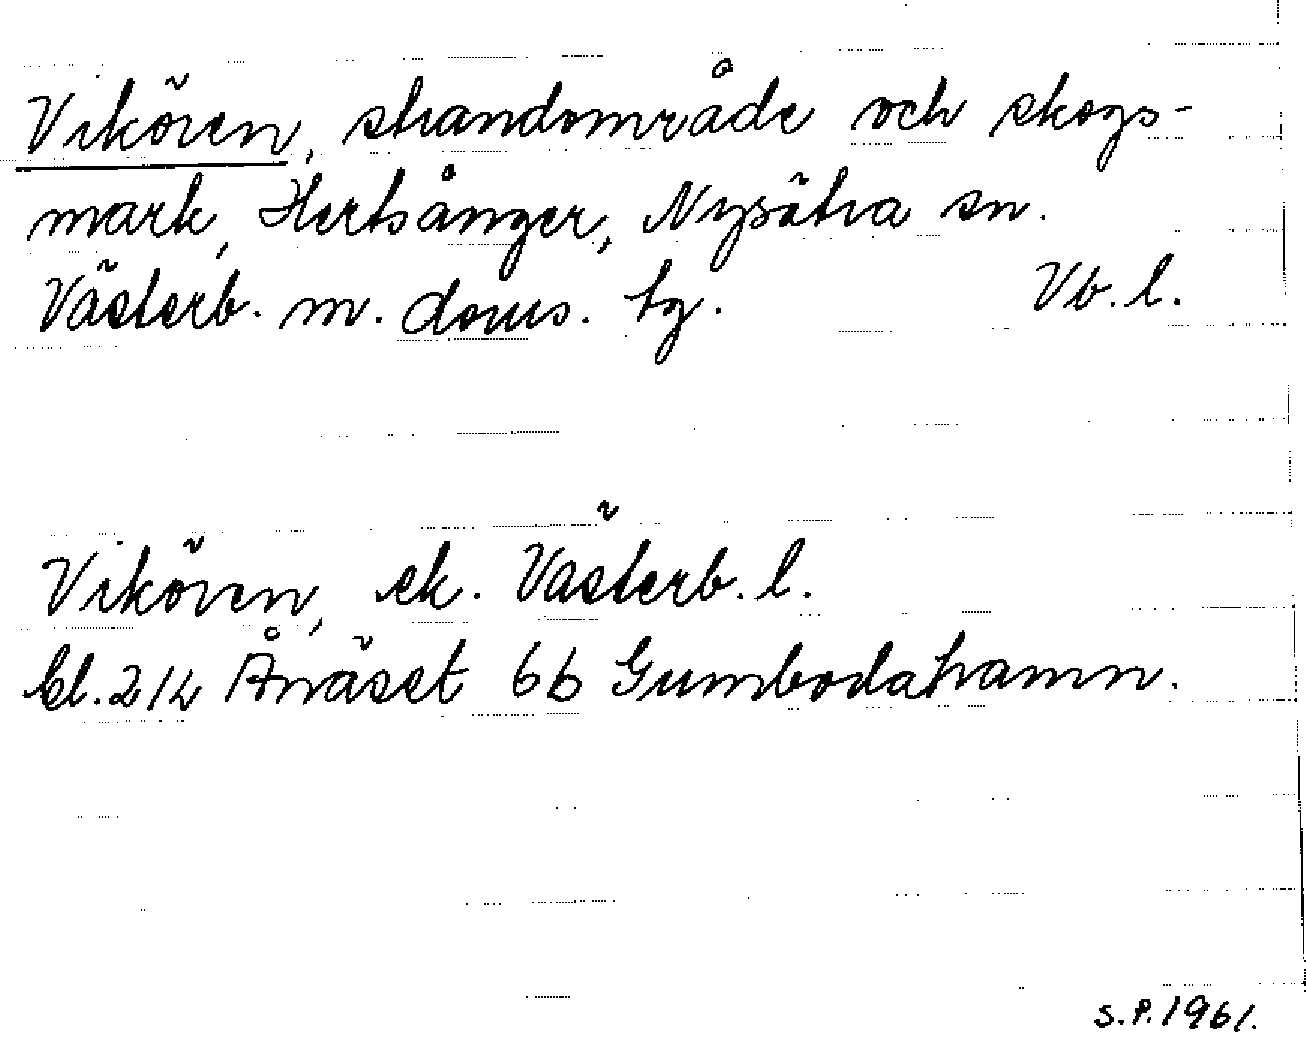 Vikören, strandområde och skogs-
mark, Hertsånger, Nysätra sn.
Västerb. m. doms. tg. Vb. l.
Vikören, ek. Västerb. l.
bl. 214 Ånäset 6b Gumbodahamn.
S.P. 1961.